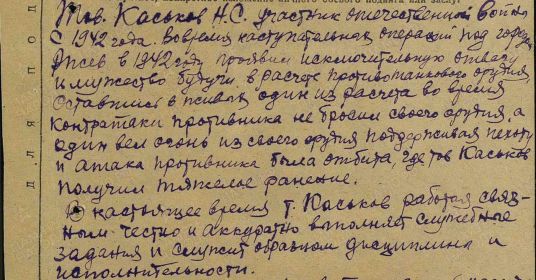 Тов. Каськов Н.С. участник отечественной войны
с 1942 года. Вовремя наступательная операций под городом
Ржев в 1942 году проявил исключительную отвагу
и мужество будучи в расчете противотанкового орудия
Оставшись в живых один из расчета во время
контратаки противника не бросил своего орудия, а
один вел огонь из своего орудия поддерживая пехоту
и атака противника была отбита, где тов Каськов
получил тяжелое ранение.
В настоящее время т. Каськов работая связ-
ным честно и аккуратно выполняет служебные
задания и служит образцом дисциплины и
исполнительности.
для под